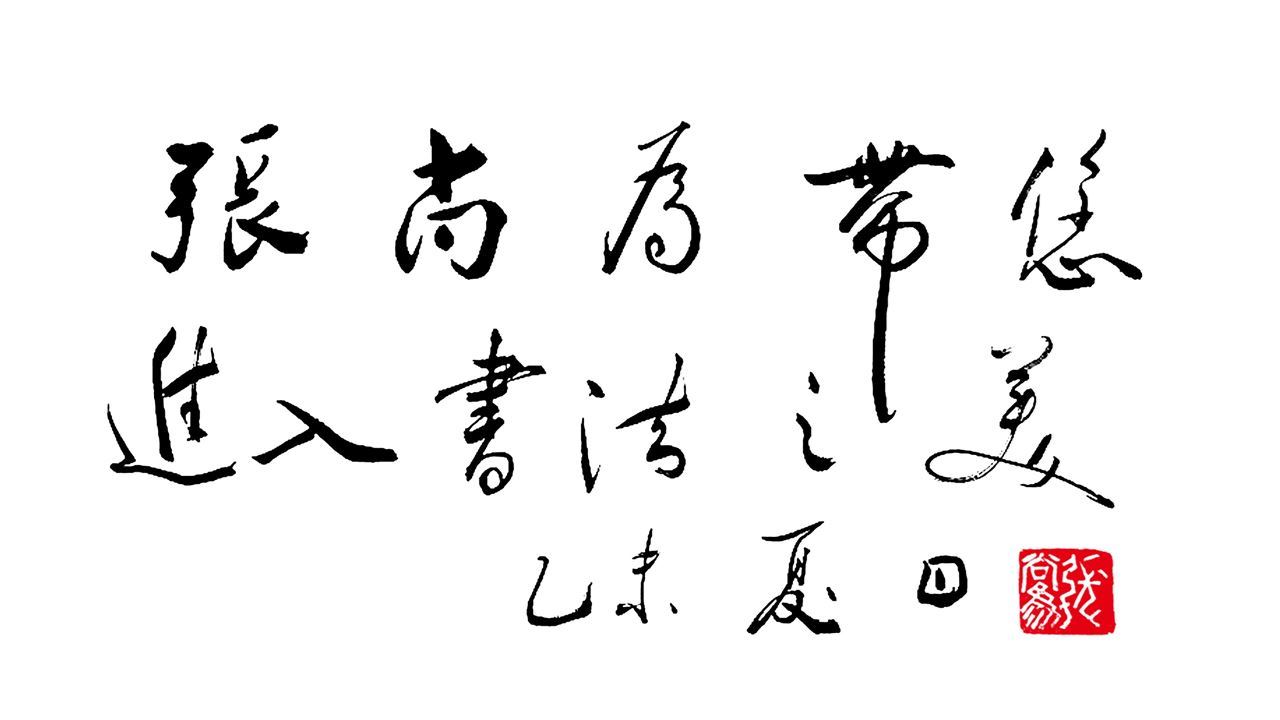 張尚為帶您
進入書法之美
乙未夏日
張尚為